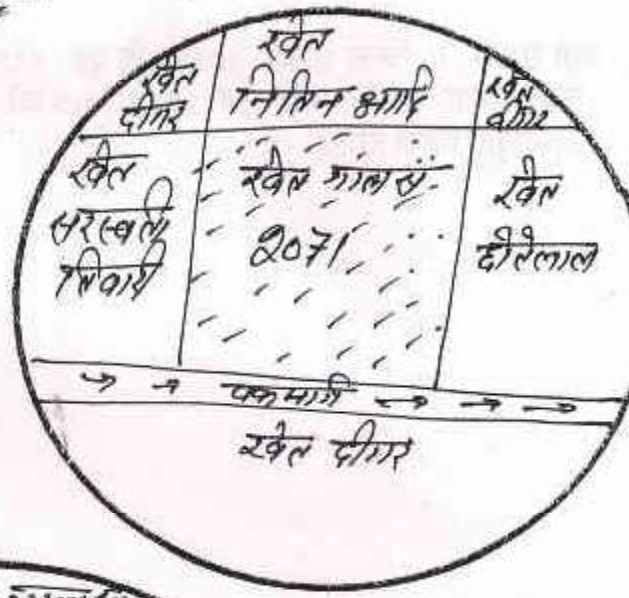 खेत
दीगर
खेत
नितिन आदि
खेत
दीगर
खेत
सरस्वती
तिवारी
खेत गाटा सं.
2071
खेत
छोटेलाल
चकमार्ग
खेत दीगर